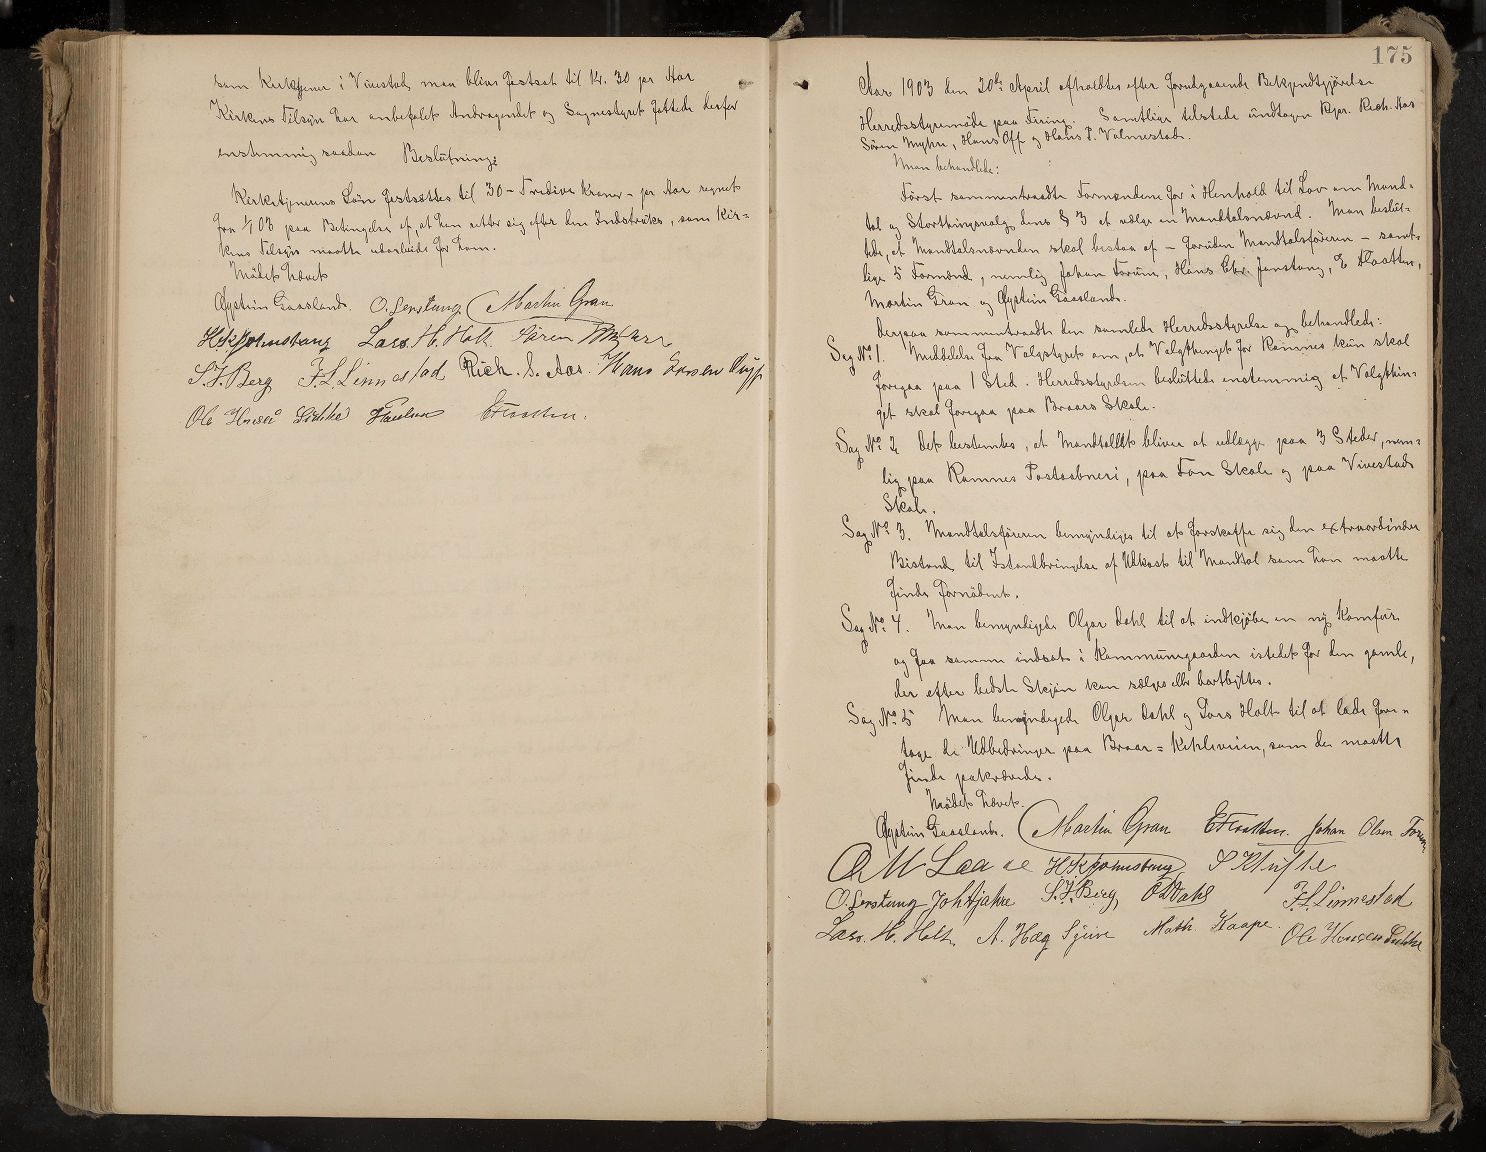 som Kirketjener i Vivestad maa blive festsat til Kr. 30 pr Aar
Kirkens Tilsyn har anbefalet Andragendet og Sognestyret fattede derfor
enstemmig saadan Beslutning:
Kirketjenerens Løn festsættes til 30 - Tredive Kroner - pr Aar regnet
fra 1/1 03 paa Betingelse af, at han retter sig efter den Instruks, som Kir=
kens Tilsyn maatte udarbeide for ham.
Mødet hævet
Øystein Gaasland. O. Gerstung Martin Gran
H. K. Jonstang Lars. H. Holt. Søren Myhre
S. J. Berg F. L. Linnestad Rich. S. Aas. Hans Larsen
Ole Hansen Paulsen E Flaatten.
175
Aar 1903 den 20de April afholdtes efter forudgaaende Bekjendtgjørelse
Herredsstyremøde paa Fering. Samtlige tilstede undtagen Rpr. Rich. Aas
Søren Myhre, Hans Off og Hans P. Valmestad.
Man behandlede:
Först sammentraadte Formændene for i Henhold til Lov om Mand-
tal og Storthingsvalg dens § 3 at vælge en Mandtalsnævnd. Man beslut-
tede, at Mandtalsnævnden skal bestaa af - foruden Mandtalsføreren - samt-
lige 5 Formænd, nemlig Johan Forum, Hans Chr. Jonstang, E Flaatten,
Martin Gran og Øystein Gaasland.
Derpaa sammentraadte den samlede Herredsstyrelse og behandlede:
Sag No 1. Meddelelse fra Valgstyret om, at Valgthinget for Ramnes kun skal
foregaa paa 1 Sted. Herredsstyrelsen besluttede enstemmig at Valgthin-
get skal foregaa paa Braars Skole.
Sag No 2 Det bestemtes, at Mandtallet bliver at udlægge paa 3 Steder, nem-
lig paa Ramnes Postaabneri, paa Fon Skole og paa Vivestad
Skole.
Sag No 3. Mandtalsføreren bemyndiges til at forskaffe sig den extraordinær
Bistand til Istandbringelse af Udkast til Mandtal som han maatte
finde fornødent.
Sag No 4. Man bemyndigede Olger Dahl til at indkjøbe en ny Komfur
og faa samme indsat i Kommunegaarden istedet for den gamle,
der efter bedste Skjøn kan sælges eller bortbyttes.
Sag No 5 Man bemyndigede Olger Dahl og Lars Holt til at lade fore-
tage de Udbedringer paa Braar = Kihleveien, som de maatte
finde paakrævede.
Mødet hævet.
Øystein Gaasland. Martin Gran E Flaatten. Johan Olsen Forum
O M Laa H K Jonstang S Klufte
O. Gerstung Joh Fjære S. J. Berg O Dahl F. L. Linnestad
Lars. H. Holt. A. Hæg Math Kaape. Ole Hansen